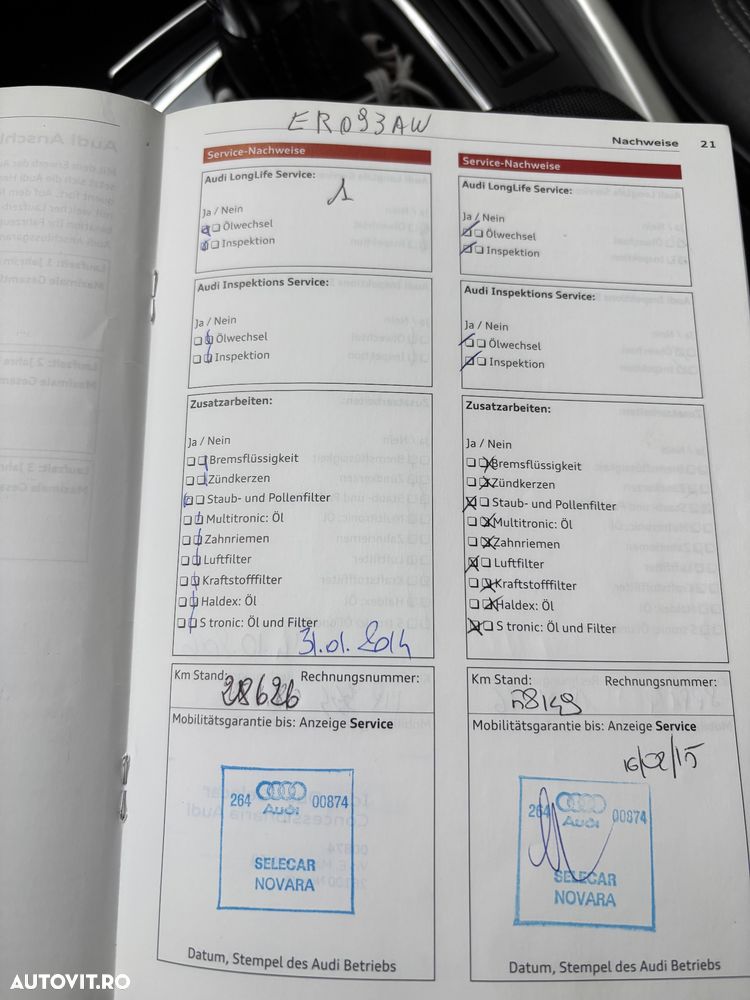 ER093AW
Nachweise 21
Service-Nachweise
Audi LongLife Service:
1
Ja / Nein
Ölwechsel
Inspektion
Audi Inspektions Service:
Ja / Nein
Ölwechsel
Inspektion
Zusatzarbeiten:
Ja / Nein
Bremsflüssigkeit
Zündkerzen
Staub- und Pollenfilter
Multitronic: Öl
Zahnriemen
Luftfilter
Kraftstofffilter
Haldex: Öl
S tronic: Öl und Filter
31.01.2014
Km Stand: Rechnungsnummer:
28626
Mobilitätsgarantie bis: Anzeige Service
264 00874
Audi
SELECAR
NOVARA
Datum, Stempel des Audi Betriebs
Service-Nachweise
Audi LongLife Service:
Ja / Nein
Ölwechsel
Inspektion
Audi Inspektions Service:
Ja / Nein
Ölwechsel
Inspektion
Zusatzarbeiten:
Ja / Nein
Bremsflüssigkeit
Zündkerzen
Staub- und Pollenfilter
Multitronic: Öl
Zahnriemen
Luftfilter
Kraftstofffilter
Haldex: Öl
S tronic: Öl und Filter
Km Stand: Rechnungsnummer:
Mobilitätsgarantie bis: Anzeige Service
16/02/15
264 00874
Audi
SELECAR
NOVARA
Datum, Stempel des Audi Betriebs
AUTOVIT.RO